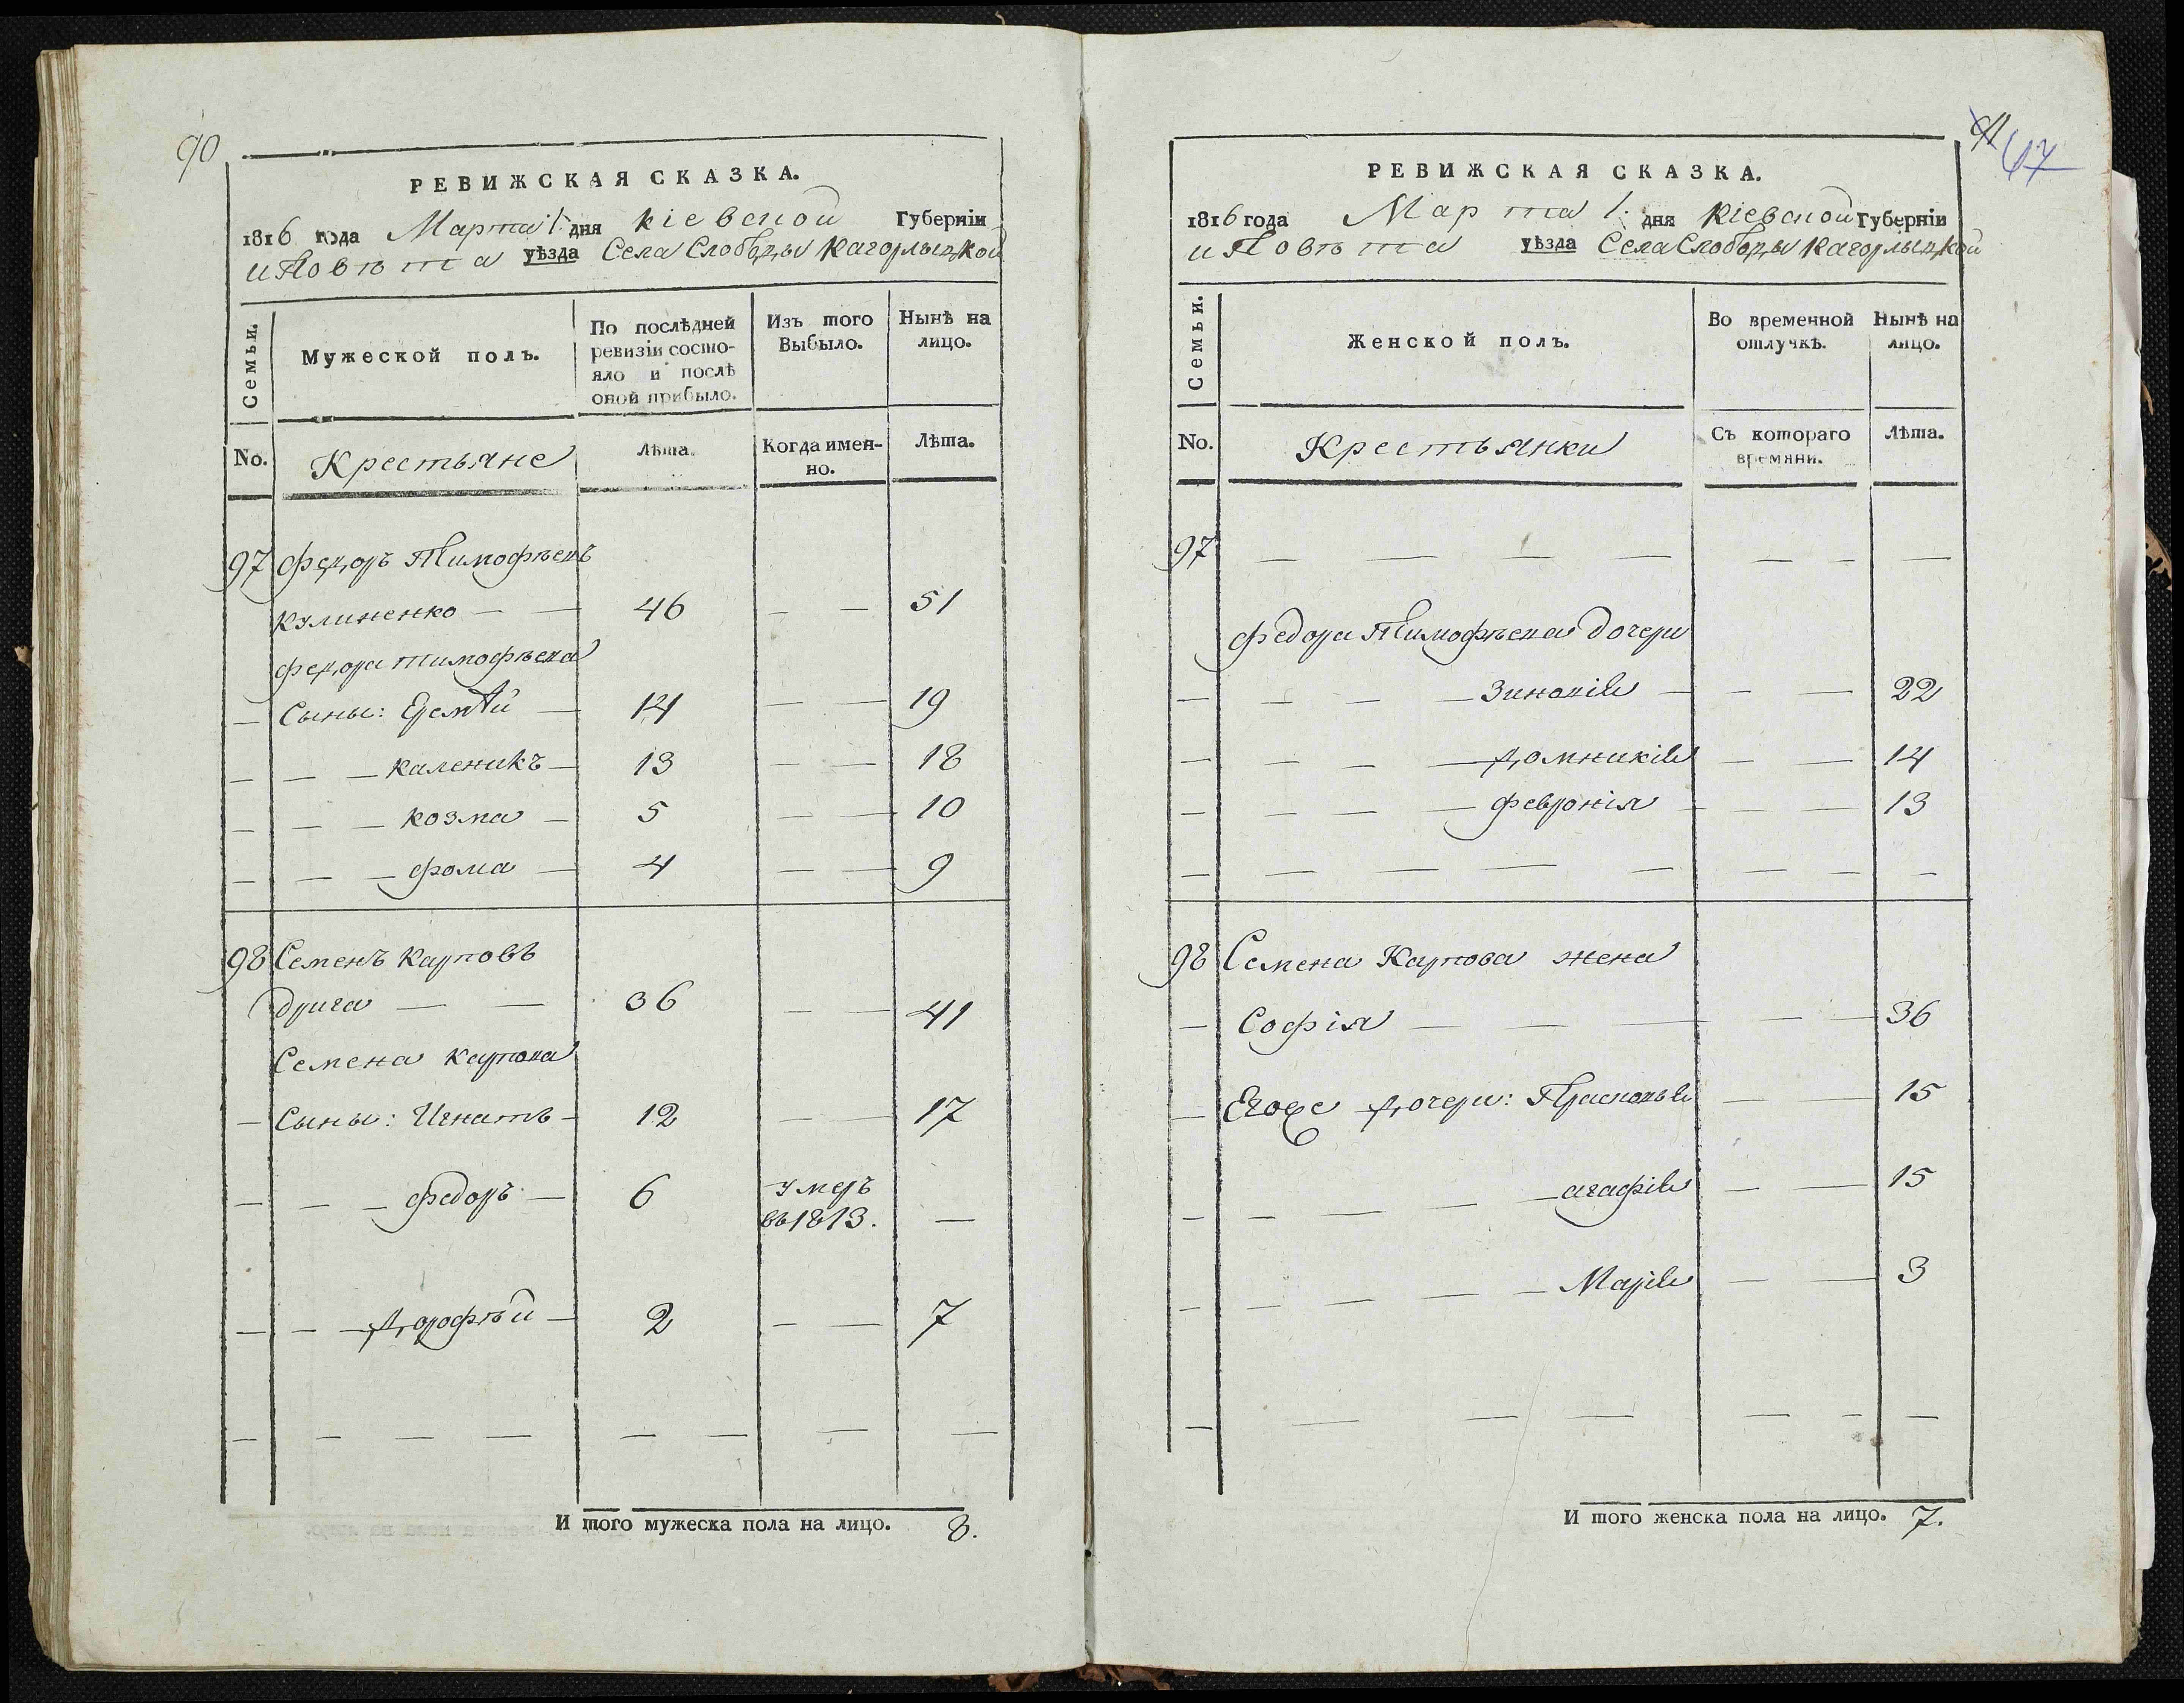 90
РЕВИЖСКАЯ СКАЗКА.
1816 года Марта 1 дня Кіевской Губерніи
и Повѣта уѣзда Села Слободы Кагорлыцкой
Семьи.
Мужеской полъ.
По послѣдней ревизіи состояло и послѣ оной прибыло.
Изъ того Выбыло.
Нынѣ на лицо.
No.
Крестьяне
Лѣта.
Когда именно.
Лѣта.
97 Федоръ Тимофѣевъ
Кулиненко — — 46 — — 51
Федора Тимофѣева
— Сыны: Еремѣй — 14 — — 19
— — — Каленикъ — 13 — — 18
— — — Козма — 5 — — 10
— — — Фома — 4 — — 9
98 Семенъ Карповъ
Дрига — — 36 — — 41
Семена Карпова
— Сыны: Игнатъ — 12 — — 17
— — — Федоръ — 6 умеръ
въ 1813. —
— — — Дорофѣй — 2 — — 7
— — — — — — — —
И того мужеска пола на лицо. 8.
91
67
РЕВИЖСКАЯ СКАЗКА.
1816 года Марта 1. дня Кіевской Губерніи
и Повѣта уѣзда Села Слободы Кагорлыцкой
Семьи.
Женской полъ.
Во временной отлучкѣ.
Нынѣ на лицо.
No.
Крестьянки
Съ котораго времяни.
Лѣта.
97 — — — — — — —
Федора Тимофѣева дочери
— — — — — Зиновія — — — 22
— — — — — Домникія — — 14
— — — — — Февронія — — — 13
— — — — — — — — —
98 Семена Карпова жена
— Софія — — — — — 36
— Егоже дочери: Прасковья — — 15
— — — — — Агафія — — 15
— — — — — Марія — — 3
— — — — — — —
И того женска пола на лицо. 7.